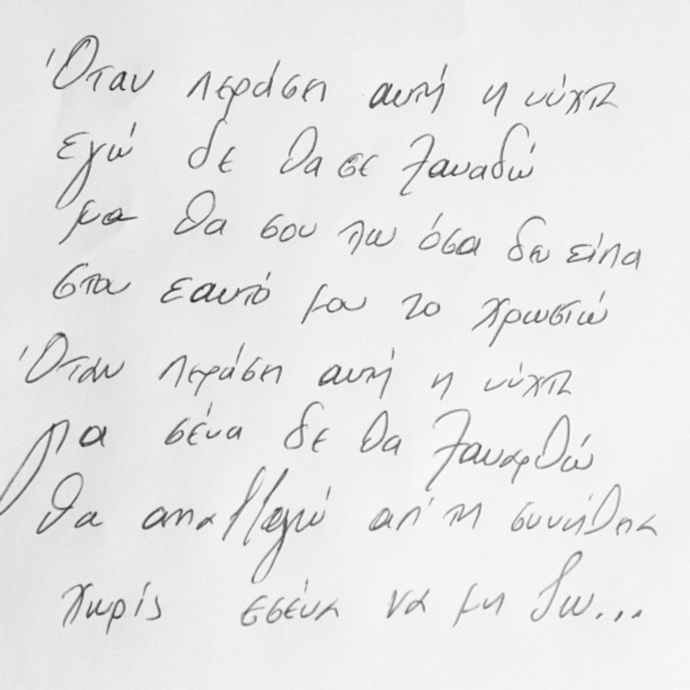 Όταν περάση αυτή η νύχτα
εγώ δε θα σε ξαναδώ
μα θα σου πω όσα δεν είπα
στον εαυτό μου το χρωστώ
Όταν περάση αυτή η νύχτα
για σένα δε θα ξαναρθώ
θα απαλλαγώ απ' τη συνήθεια
χωρίς εσένα να μη ζω...